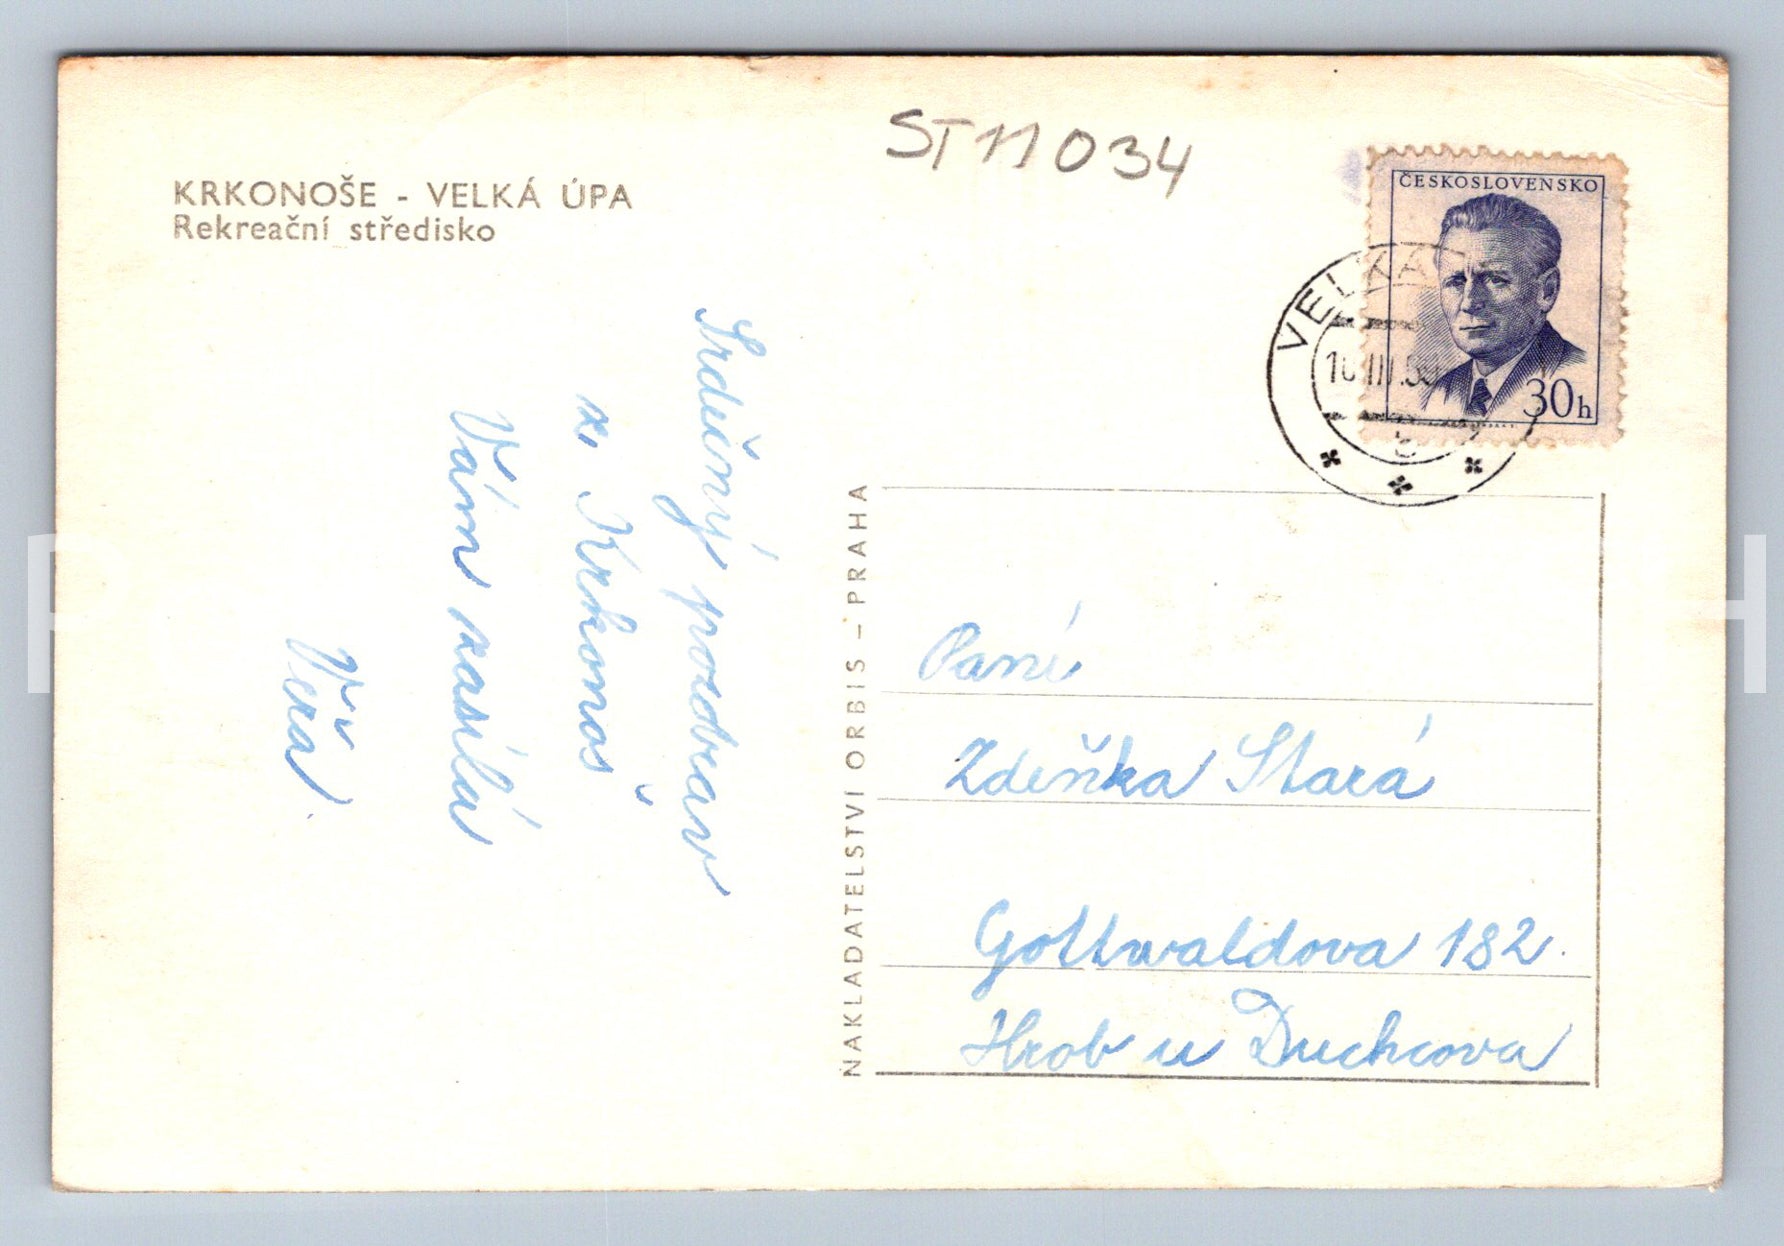 ST 11 034
KRKONOŠE - VELKÁ ÚPA
Rekreační středisko
ČESKOSLOVENSKO
30h
VELKÁ
III.
Srdečný pozdrav
z Krkonoš
Vám zasílá
Věra.
NAKLADATELSTVÍ ORBIS – PRAHA
Paní
Zdeňka Stará
Gottwaldova 182.
Hrob u Duchcova
P
H